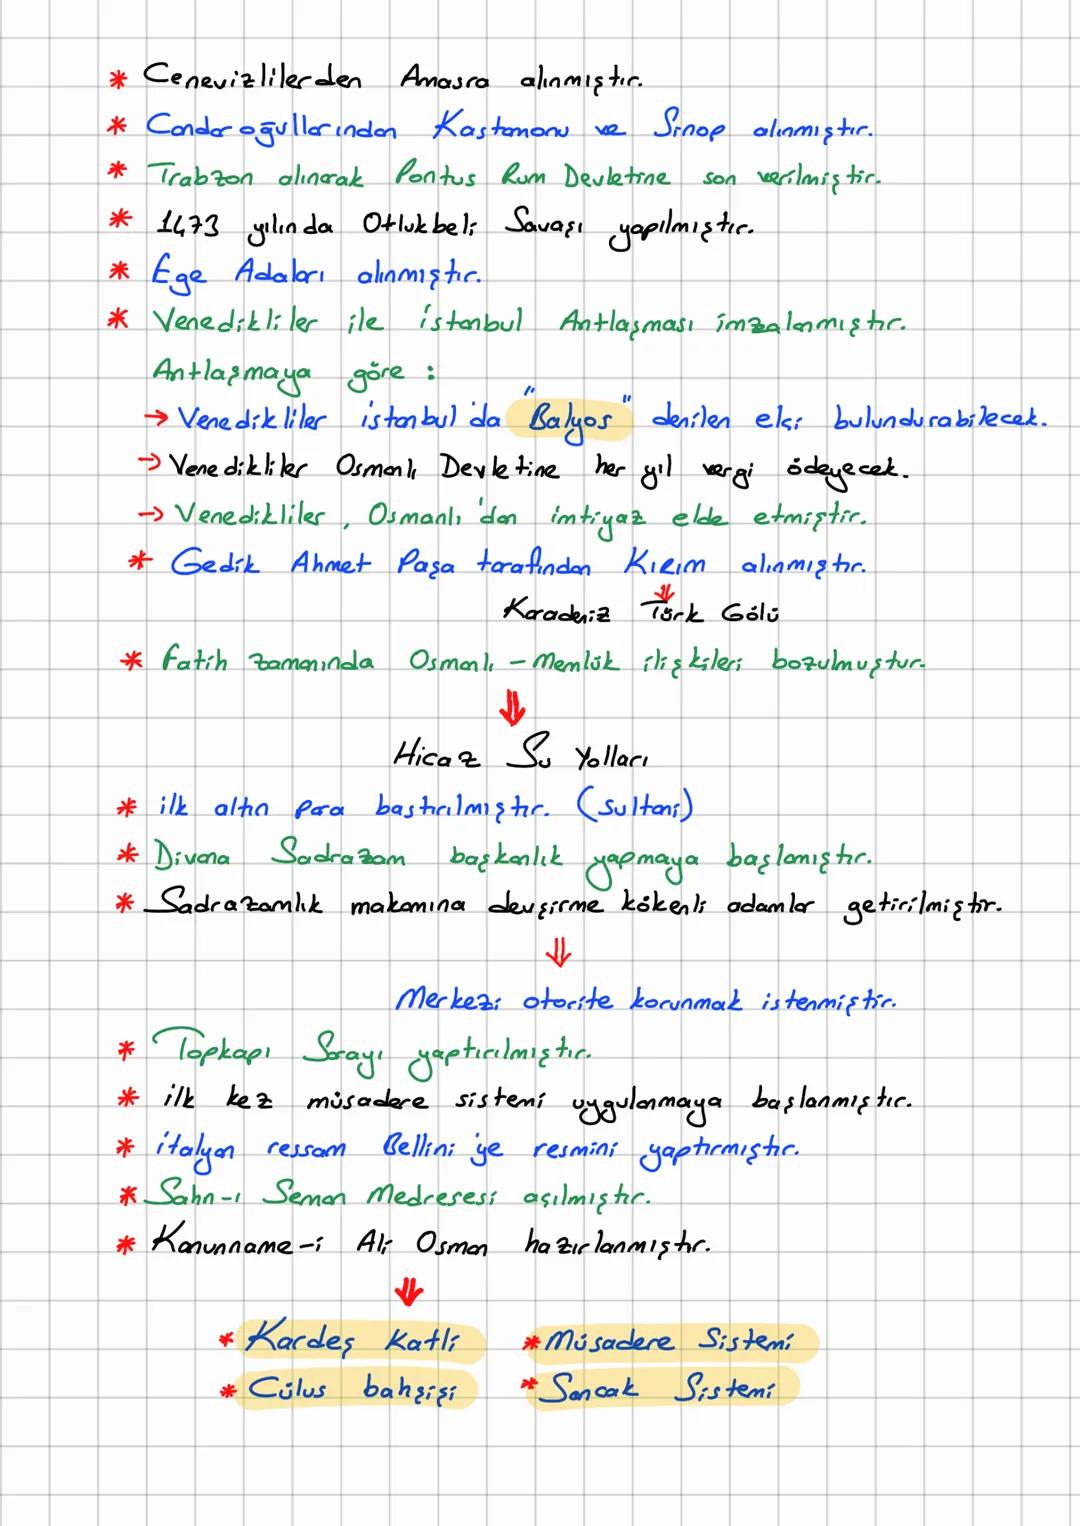 * Cenevizlilerden Amasra alınmıştır.
* Candaroğullarından Kastamonu ve Sinop alınmıştır.
* Trabzon alınarak Pontus Rum Devletine son verilmiştir.
* 1473 yılında Otlukbeli Savaşı yapılmıştır.
* Ege Adaları alınmıştır.
* Venedikliler ile istanbul Antlaşması imzalanmıştır.
Antlaşmaya göre :
→ Venedikliler istanbul'da "Balyos" denilen elçi bulundurabilecek.
→ Venedikliler Osmanlı Devletine her yıl vergi ödeyecek.
→ Venedikliler, Osmanlı'dan imtiyaz elde etmiştir.
* Gedik Ahmet Paşa tarafından Kırım alınmıştır.
⇓
Karadeniz Türk Gölü
* Fatih zamanında Osmanlı - Memlük ilişkileri bozulmuştur.
⇓
Hicaz Su Yolları
* ilk altın para bastırılmıştır. (Sultani)
* Divana Sadrazam başkanlık yapmaya başlamıştır.
* Sadrazamlık makamına devşirme kökenli adamlar getirilmiştir.
⇓
Merkezi otorite korunmak istenmiştir.
* Topkapı Sarayı yaptırılmıştır.
* ilk kez müsadere sistemi uygulanmaya başlanmıştır.
* italyan ressam Bellini'ye resmini yaptırmıştır.
* Sahn-ı Seman Medresesi açılmıştır.
* Kanunname-i Ali Osman hazırlanmıştır.
⇓
* Kardeş Katli * Müsadere Sistemi
* Cülus bahşişi * Sancak Sistemi